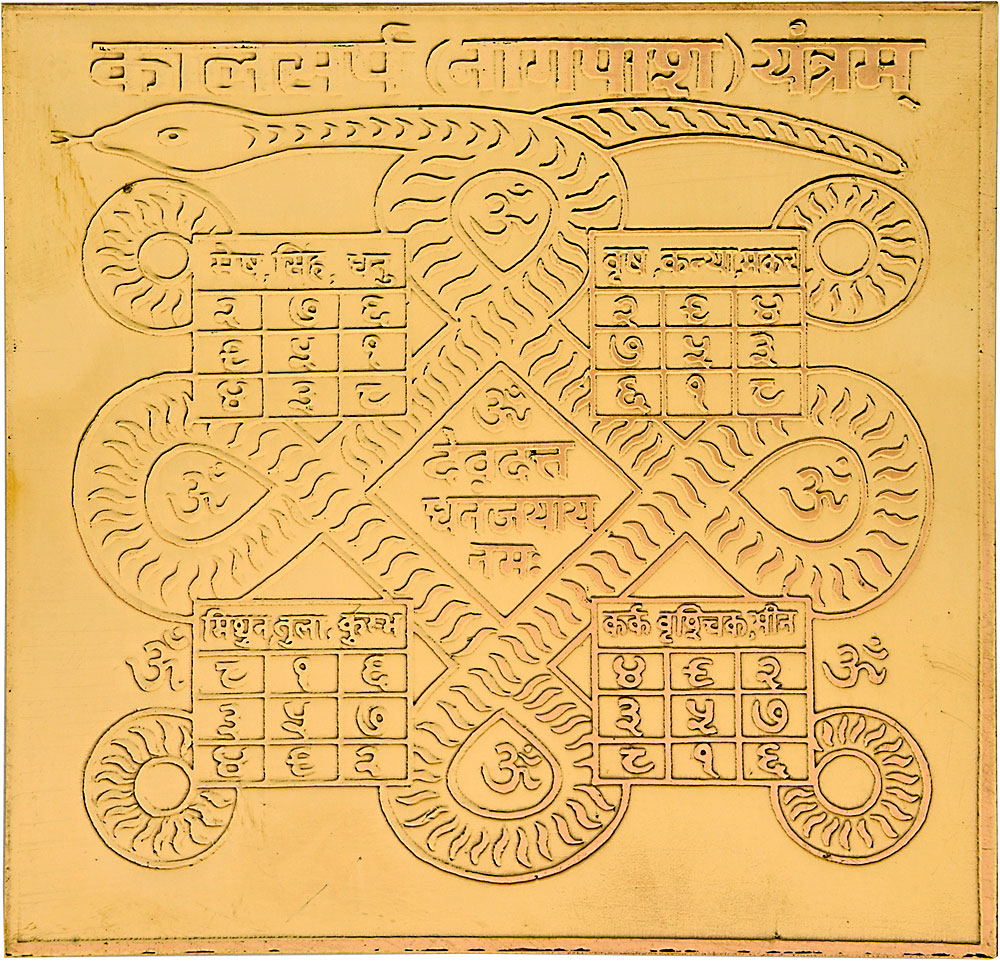 कालसर्प (नागपाश) यंत्रम्
ॐ
मेष, सिंह, धनु
२ ७ ६
९ ५ १
४ ३ ८
वृष, कन्या, मकर
२ ९ ४
७ ५ ३
६ १ ८
ॐ
ॐ
देवदत्त
धनजयाय
नमः
ॐ
मिथुन, तुला, कुम्भ
८ १ ६
३ ५ ७
४ ९ २
कर्क वृश्चिक, मीन
४ ९ २
३ ५ ७
८ १ ६
ॐ
ॐ
ॐ